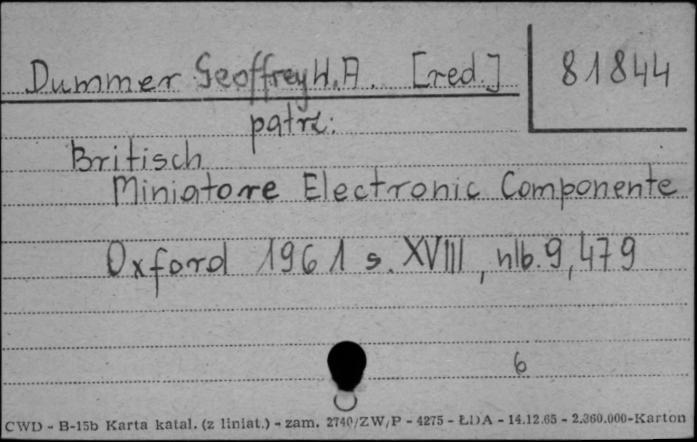 Dummer Geoffrey W.A. [red.]
81844
patrz:
Britisch
Miniatore Electronic Componente
Oxford 1961 s. XVIII, nlb. 9, 479
6
CWD - B-15b Karta katal. (z liniat.) - zam. 2740/ZW/P - 4275 - ŁDA - 14.12.65 - 2.360.000-Karton